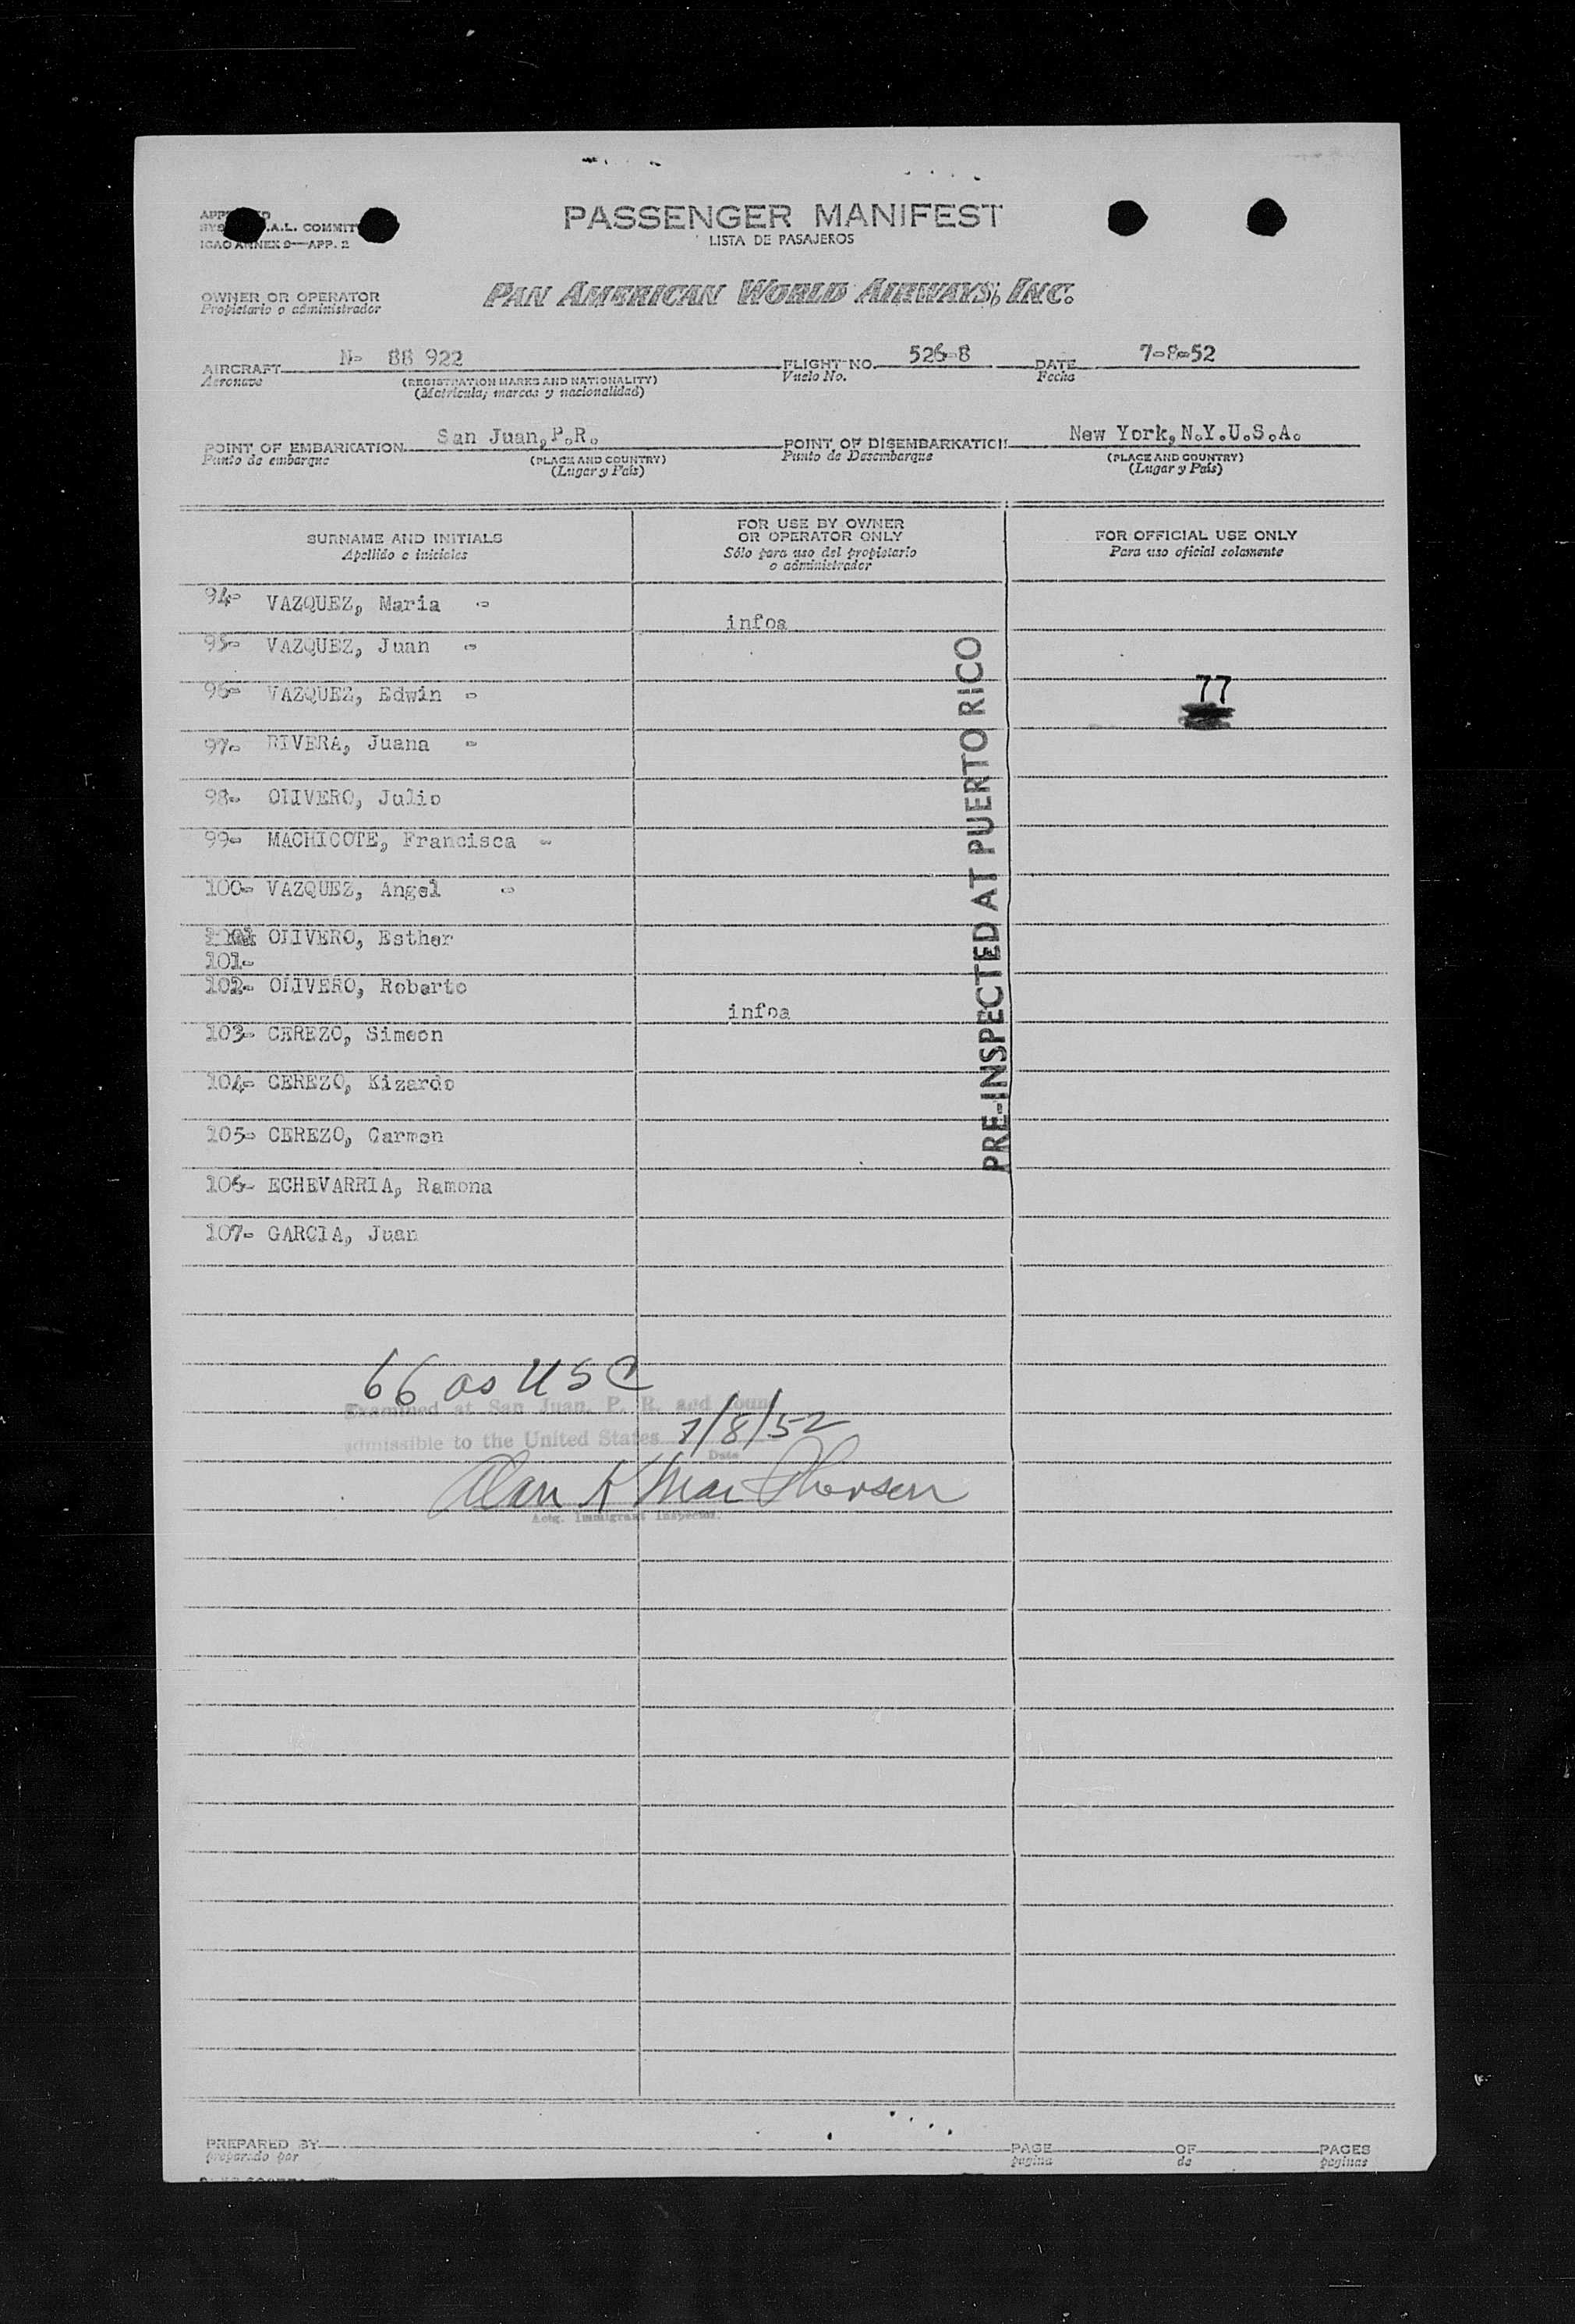 PASSENGER MANIFEST
LISTA DE PASAJEROS
.A.L. COMMIT
ICAO ANNEX 9—APP. 2
OWNER OR OPERATOR
Propietario o administrador
PAN AMERICAN WORLD AIRWAYS, INC.
AIRCRAFT N- 88 922 FLIGHT NO. 526-8 DATE 7-8-52
Aeronave (REGISTRATION MARKS AND NATIONALITY) Vuelo No. Fecha
(Matricula, marcas y nacionalidad)
POINT OF EMBARKATION San Juan, P.R. POINT OF DISEMBARKATION New York, N.Y.U.S.A.
Punto de embarque (PLACE AND COUNTRY) Punto de Desembarque (PLACE AND COUNTRY)
(Lugar y País) (Lugar y País)
SURNAME AND INITIALS
Apellido e iniciales
FOR USE BY OWNER
OR OPERATOR ONLY
Sólo para uso del propietario
o administrador
FOR OFFICIAL USE ONLY
Para uso oficial solamente
94- VAZQUEZ, Maria -
infoa
95- VAZQUEZ, Juan -
96- VAZQUEZ, Edwin -
77
97- RIVERA, Juana -
98- OLIVERO, Julio
99- MACHICOTE, Francisca -
100- VAZQUEZ, Angel -
OLIVERO, Esther
101-
102- OLIVERO, Roberto
infoa
103- CEREZO, Simeon
104- CEREZO, Kizardo
105- CEREZO, Carmen
106- ECHEVARRIA, Ramona
107- GARCIA, Juan
PRE-INSPECTED AT PUERTO RICO
66 as USC
Examined at San Juan, P. R. and foun
admissible to the United States 7/8/52
Date
Alan K MacPherson
Actg. Immigrant Inspector.
PREPARED BY PAGE OF PAGES
preparado por pagina de paginas